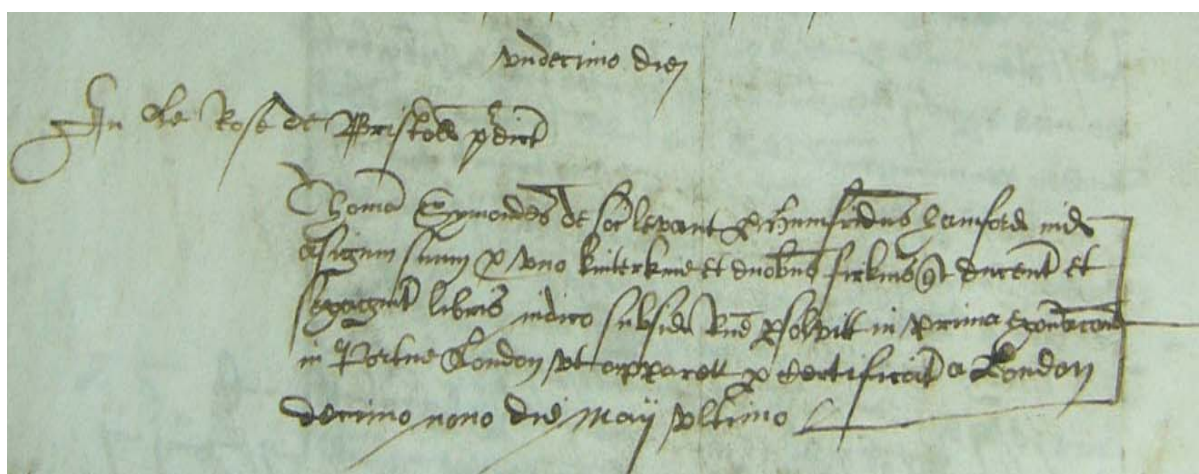 undecimo die
In le Rose de Bristoll predict
Thomas Symondes de soc levant per Humfridus Hamford ind
asigm suum p uno kinterkine et duobus firkins qt ducent et
sexagint libris indico subsid unde psolvitt in prima
in Portue London ut apparett p certificat a London
decimo nono die Maij ultimo